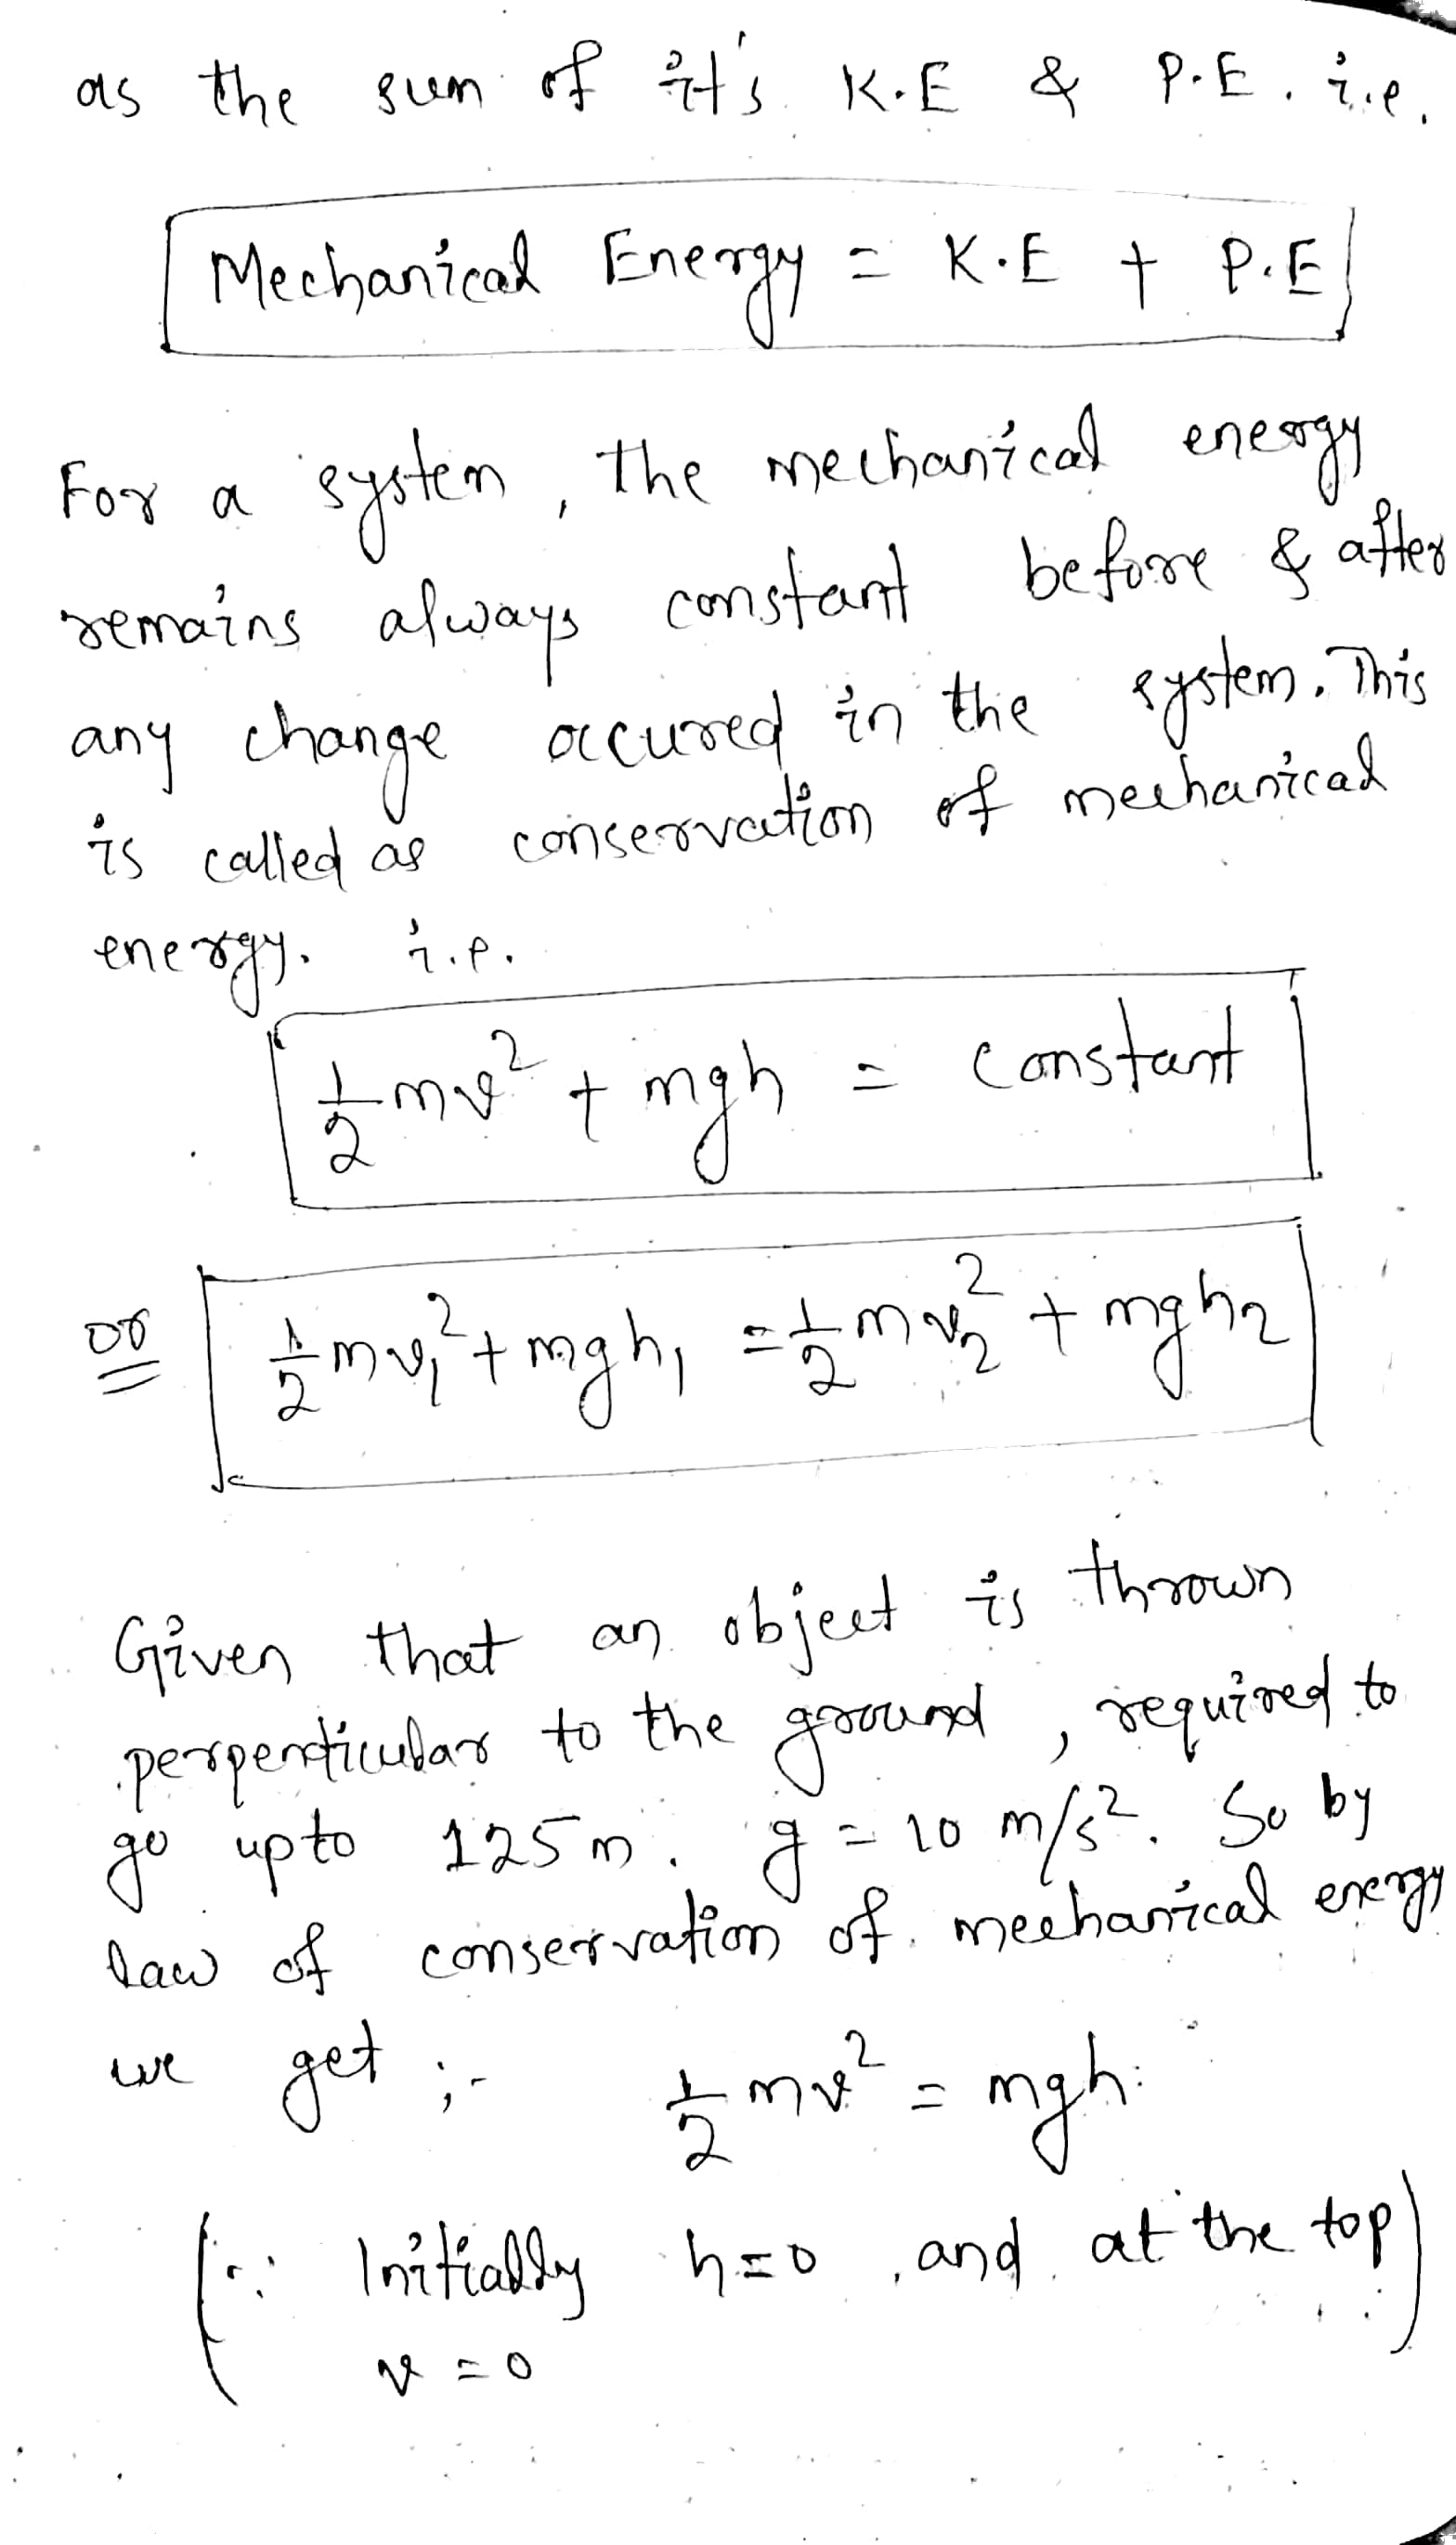 as the sum of it's K.E & P.E. i.e.
Mechanical Energy = K.E + P.E
For a system, the mechanical energy
remains always constant before & after
any change occured in the system. This
is called as conservation of mechanical
energy. i.e.
1/2 mv² + mgh = constant
or 1/2 mv₁² + mgh₁ = 1/2 mv₂² + mgh₂
Given that an object is thrown
perpendicular to the ground, required to
go upto 125 m. g = 10 m/s². So by
law of conservation of mechanical energy
we get ;- 1/2 mv² = mgh
(∵ Initially h=0, and at the top
v = 0)